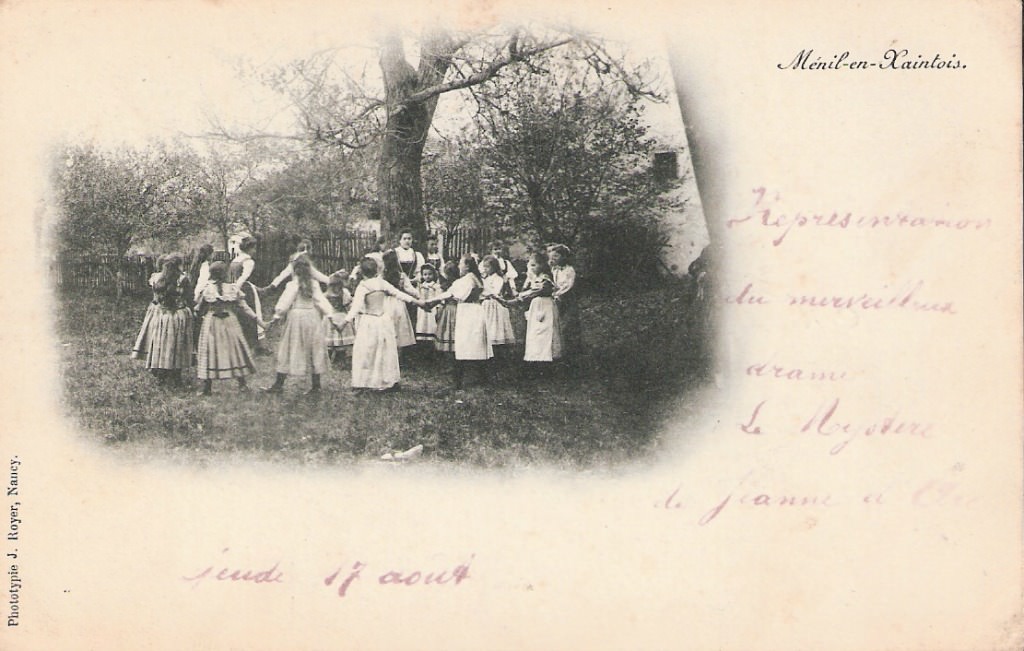 Ménil-en-Xaintois.
Représentation
du merveilleux
drame
Le Mystère
de Jeanne d'Arc
jeudi 17 août
Phototypie J. Royer, Nancy.